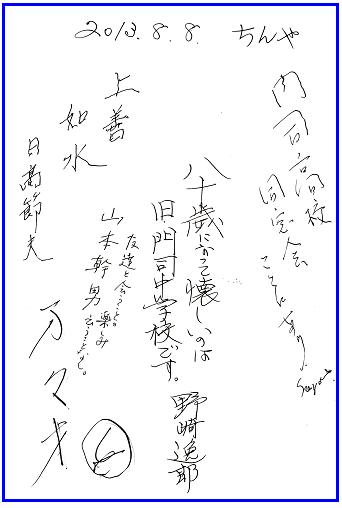 2013.8.8. ちんや
門司高校
同窓会
ここにあり
八十歳になって懐しいのは
旧・門司中学校です。
野崎逸郎
上善
如水
日高節夫
友達と会うこと。
楽しみ
山本幹男
万々才